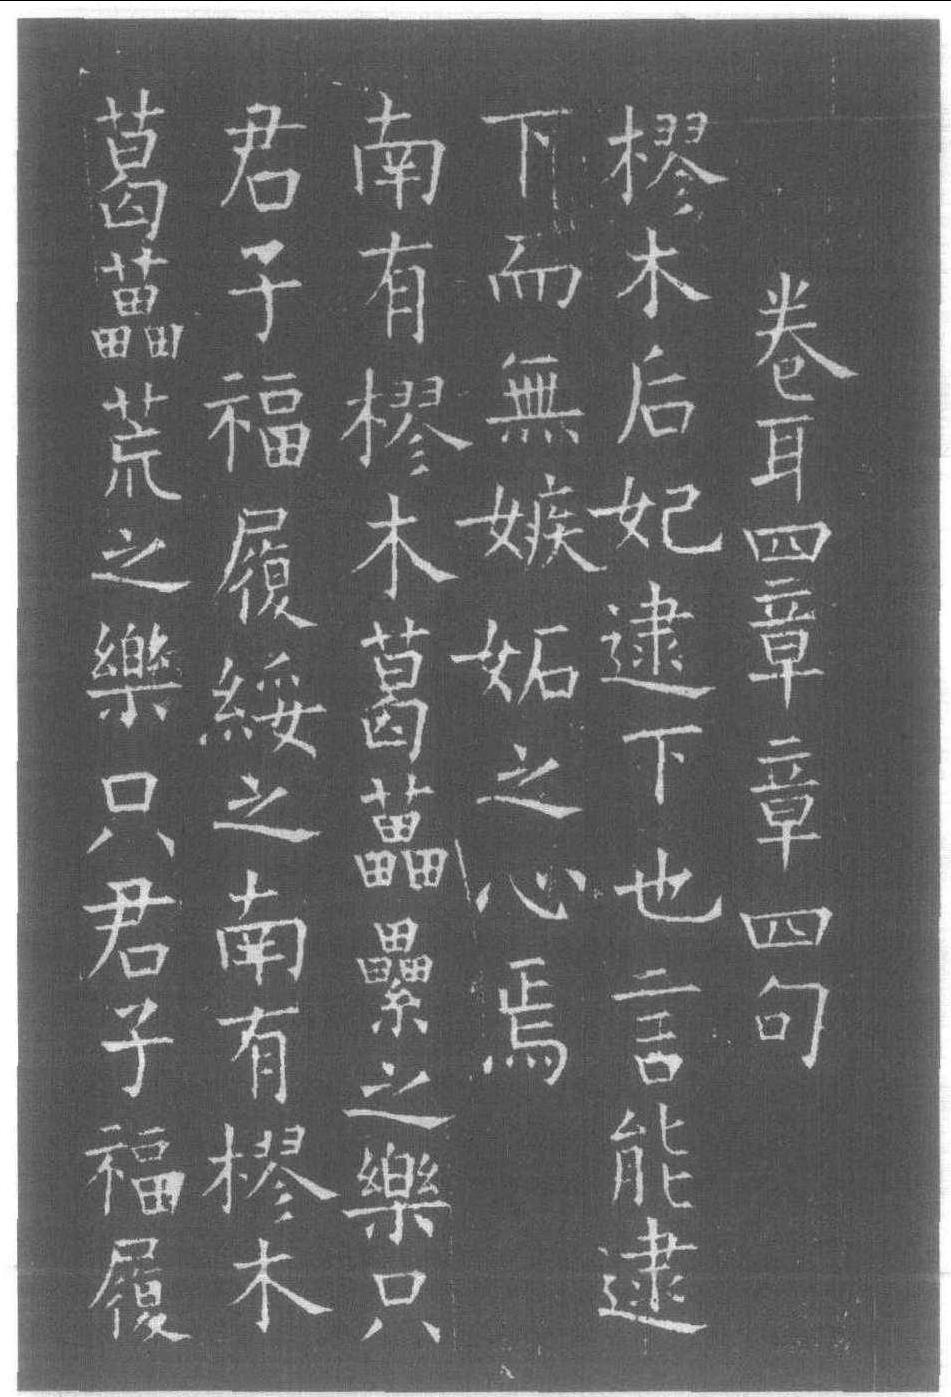 卷耳四章章四句
樛木后妃逮下也言能逮
下而無嫉妬之心焉
南有樛木葛藟纍之樂只
君子福履綏之南有樛木
葛藟荒之樂只君子福履